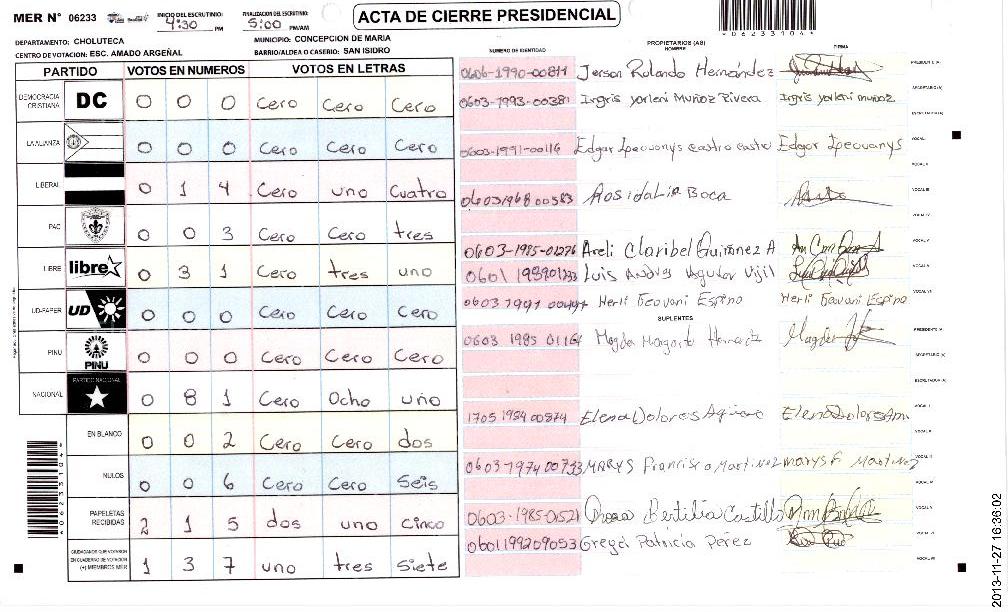 MER N° 06233
INICIO DEL ESCRUTINIO:
4:30 PM
FINALIZACION DEL ESCRUTINIO:
5:00 PM/AM
ACTA DE CIERRE PRESIDENCIAL
DEPARTAMENTO: CHOLUTECA
MUNICIPIO: CONCEPCION DE MARIA
CENTRO DE VOTACION: ESC. AMADO ARGEÑAL
BARRIO/ALDEA O CASERIO: SAN ISIDRO
NUMERO DE IDENTIDAD
PROPIETARIOS (AS)
NOMBRE
FIRMA
PARTIDO VOTOS EN NUMEROS VOTOS EN LETRAS
DEMOCRACIA CRISTIANA DC 0 0 0 Cero Cero Cero
LA ALIANZA 0 0 0 Cero Cero Cero
LIBERAL 0 1 4 Cero uno Cuatro
PAC 0 0 3 Cero Cero tres
LIBRE libre 0 3 1 Cero tres uno
UD-FAPER UD 0 0 0 Cero Cero Cero
PINU PINU 0 0 0 Cero Cero Cero
NACIONAL PARTIDO NACIONAL 0 8 1 Cero Ocho uno
EN BLANCO 0 0 2 Cero Cero dos
NULOS 0 0 6 Cero Cero Seis
PAPELETAS RECIBIDAS 2 1 5 dos uno Cinco
CIUDADANOS QUE VOTARON EN CUADERNO DE VOTACION (+) MIEMBROS MER 1 3 7 uno tres Siete
Jerson Rolando Hernández
0603-1993-00381 Ingris Yorleni Muñoz Rivera Ingris yorleni muñoz
0603-1991-00116 Edgar Ipecuanys castro castro Edgar Ipecuanys
0603 1968 00583 Rosidalia Boca
0603-1985-01276 Areli Claribel Guironez A
Luis Andres Aguilar Vijil
Herli Geovani Espino Herli Geovani Espino
SUPLENTES
0603 1985 01164 Magda Margarita Magda
1705 1954 00874 Elena Dolores Elena Dolores
0603-1974 00733 MARYS Francisca Martinez marys F Martinez
0603-1985-01521 Bertilia Castillo
0601199209053 Greysi Patricia Perez
4062331044
2013-11-27 16:36:02